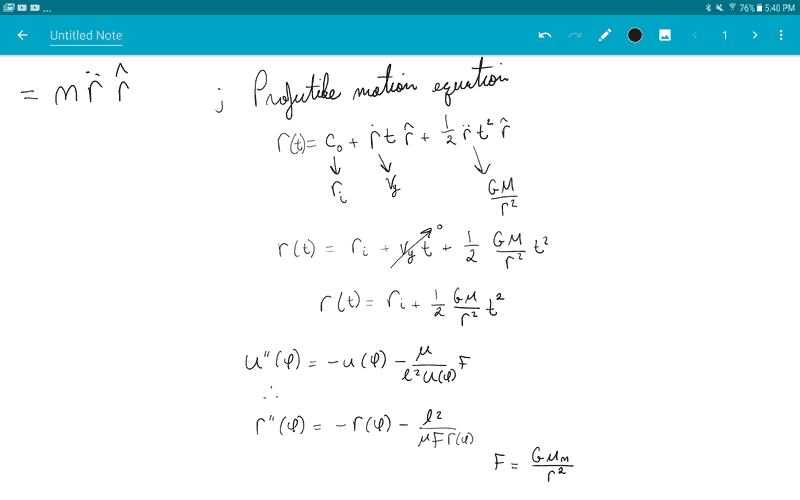 ... 76% 5:40 PM
Untitled Note 1
= m r̈ r̂ ; Projutike motion equation
r(t) = C₀ + ṙ t r̂ + 1/2 r̈ t² r̂
rᵢ Vy GM/r²
r(t) = rᵢ + Vy t⁰ + 1/2 GM/r² t²
r(t) = rᵢ + 1/2 GM/r² t²
u''(φ) = -u(φ) - μ/(l² u(φ)) F
∴
r''(φ) = -r(φ) - l²/(μ F r(φ))
F = GMm/r²